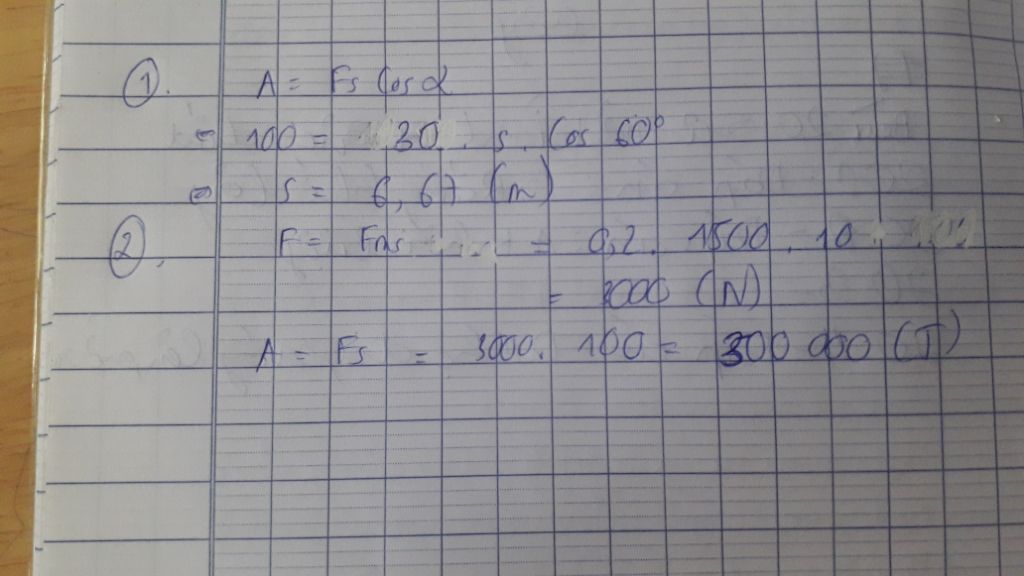 ①. A = Fs Cos α
⇔ 100 = 30 . s . Cos 60°
⇔ s = 6,67 (m)
②. F = Fms = 0,2 . 1500 . 10
= 3000 (N)
A = Fs = 3000 . 100 = 300 000 (J)